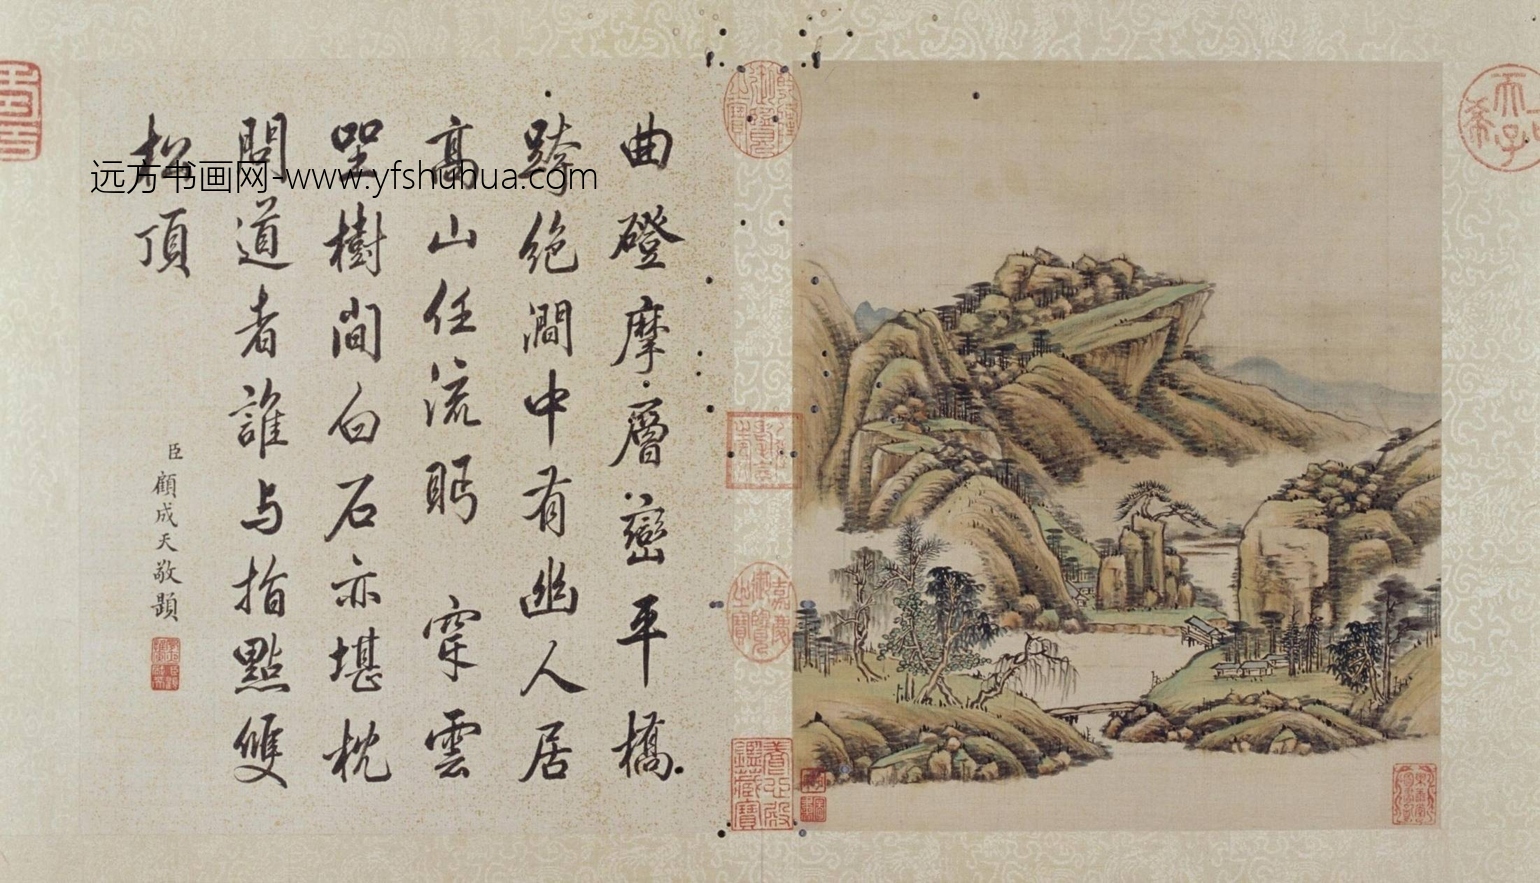 曲磴摩層巒平橋
跨絶澗中有幽人居
高山任流眄穿雲
坐樹間白石亦堪枕
問道者誰与指點雙
松頂
臣顧成天敬題
远方书画网-www.yfshuhua.com
嘉慶御覽之寶
養心殿鑑藏寶